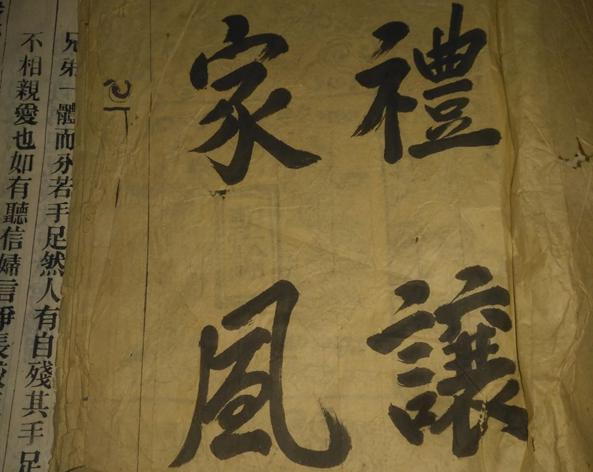 禮讓
家風
兄弟一體而分若手足然人有自殘其手足
不相親愛也如有聽信婦言爭長